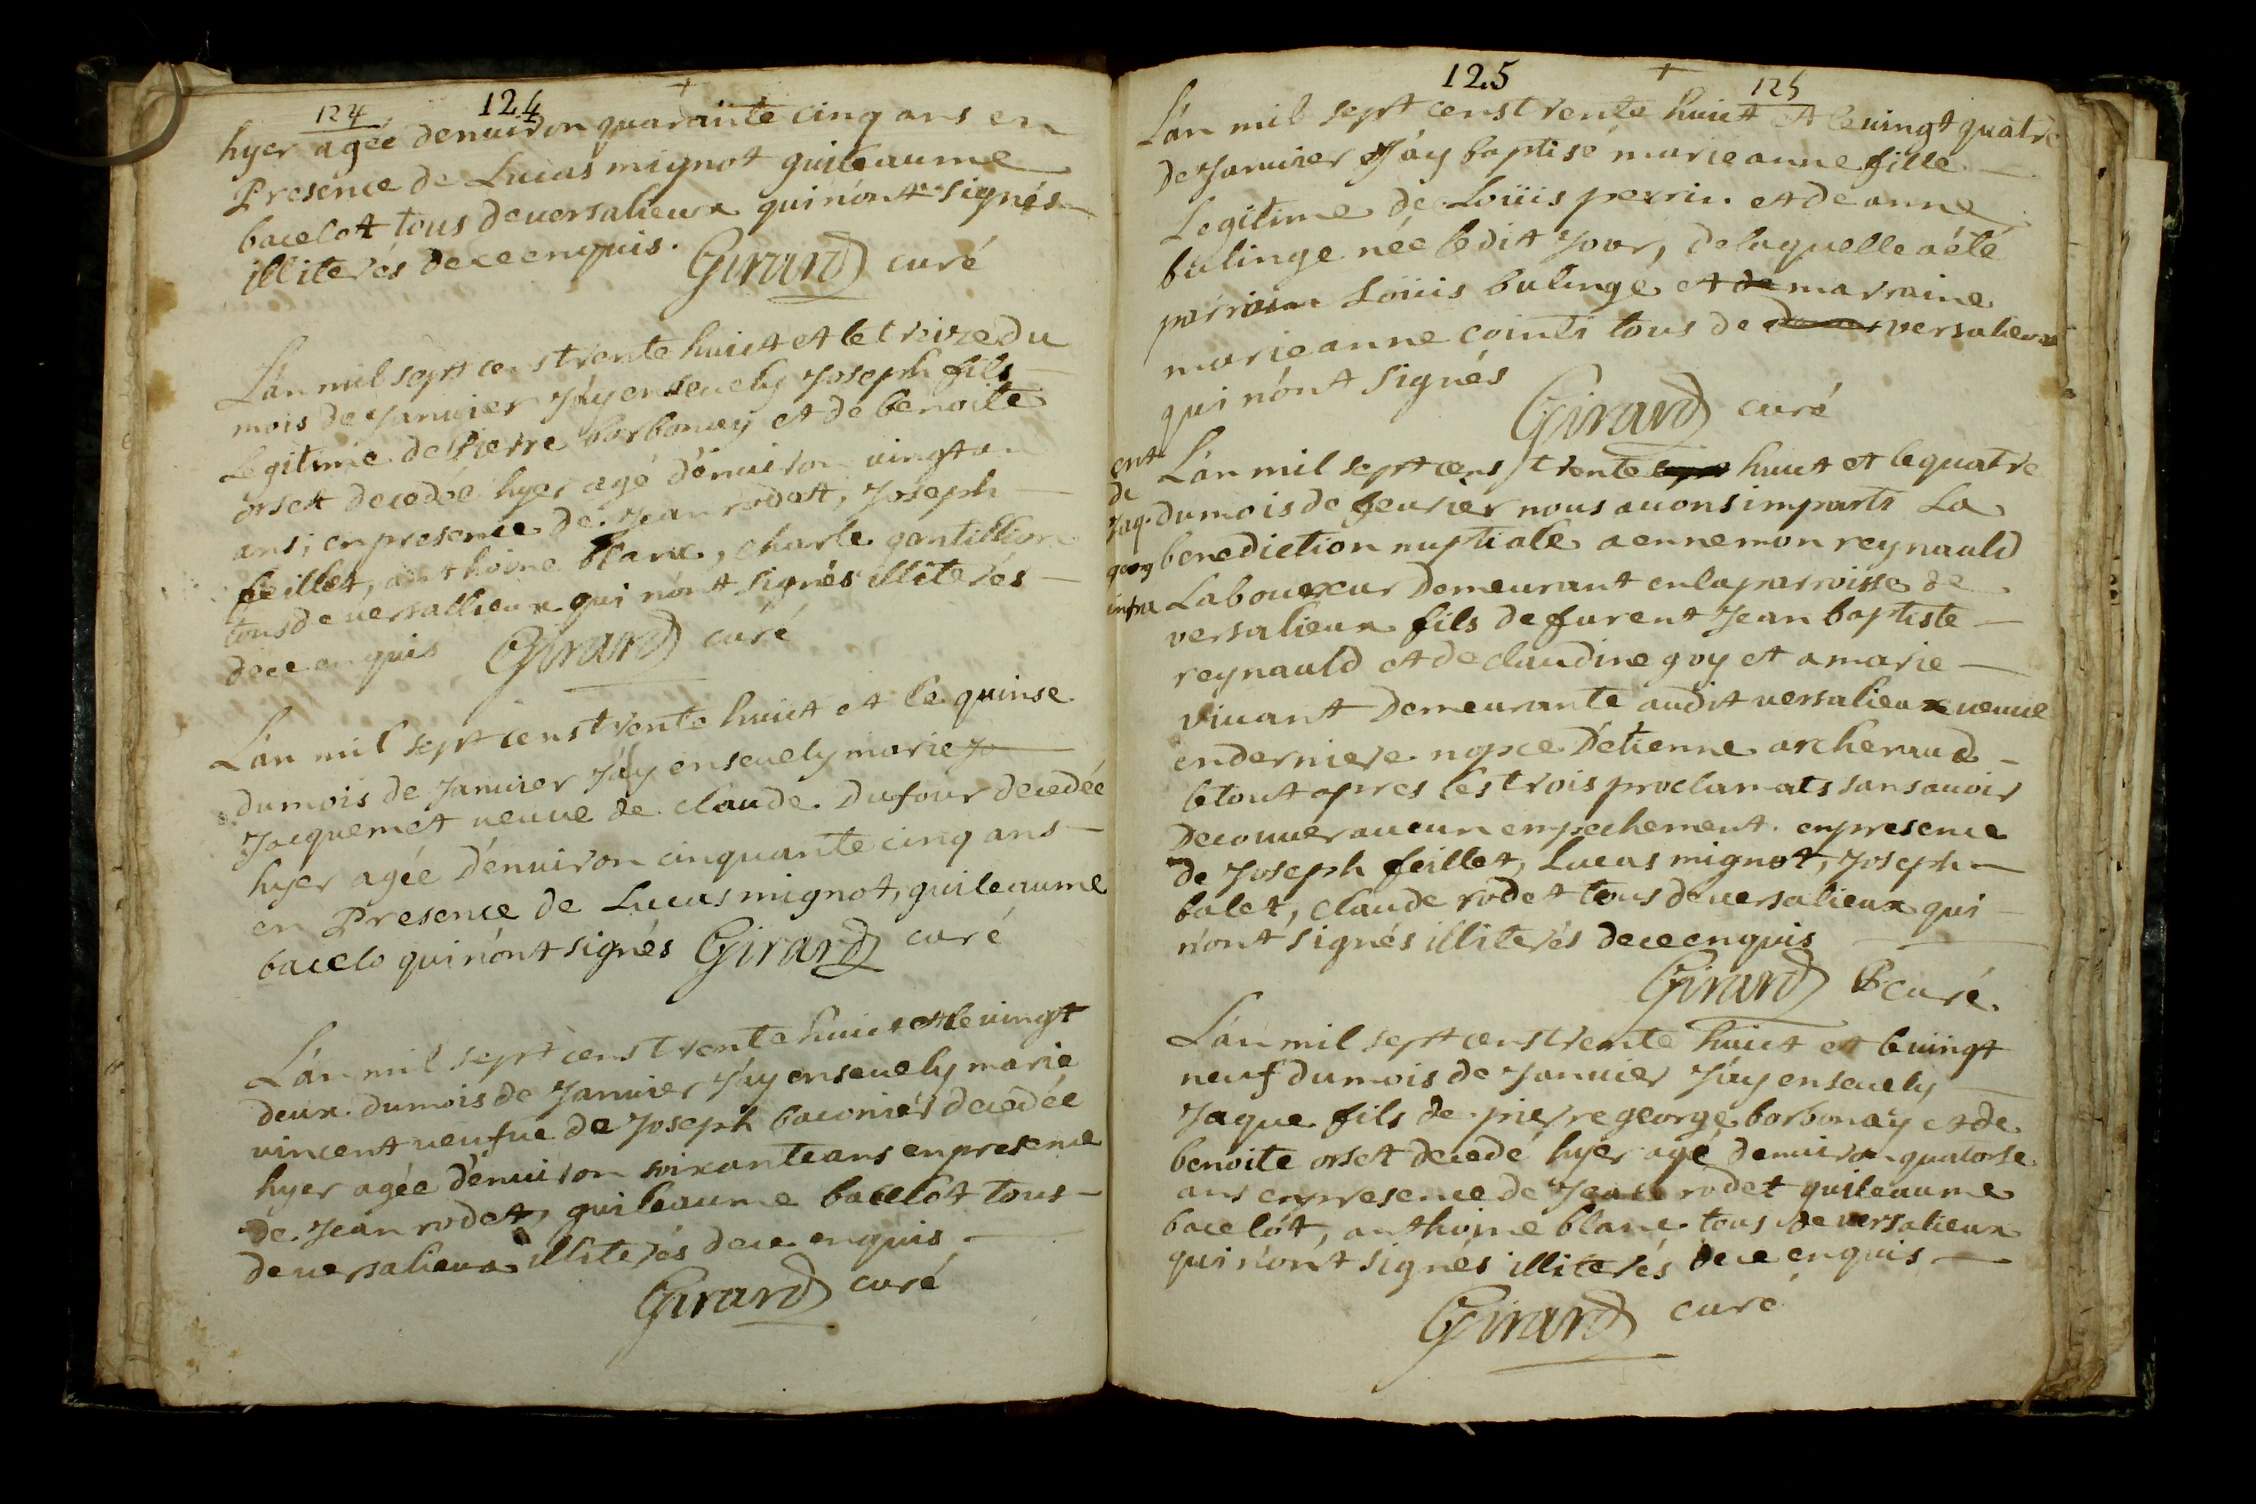 124 124
hyer agée denuiron quarainte cinq ans en
Presence de Lucas mignot guileaume
bacelot tous deversalieux qui nónt signés
illiterés dece enquis.
Girard curé
Lán mil sept cens trente huict et le treize du
mois de Januier J'áy enseuely Joseph fils
Legitime de Pierre borbonay et de benoite
orset decedée hyer agé dénuiron uingt un
ans; en presence de Jean rodet, Joseph
feillet, anthoine blanc, charle gontillion
tous de versallieux qui nónt signés illiterés
dece enquis Girard curé
Lán mil sept cens trente huict et le quinse
dumois de Januier J'áy enseuely marie
Jacquemet ueuue de claude Dufour decedée
hyer agée dénuiron cinquante cinq ans
en Presence de Lucas mignot, guileaume
bacelo qui nónt signés Girard curé
Lán mil sept cens trente huict et le uingt
deux dumois de Januier J'áy enseuely marie
uincent ueufue de Joseph baconier decedée
hyer agée dénuiron soixante ans en presence
de Jean rodet, guileaume bacelot tous
de uersalieux illiterés dece enquis
Girard curé
125 125
Lán mil sept cens trente huict et le uingt quatre
de Januier J'áy baptisé marie anne fille
Legitime de Loüis perrin et de anne
bulinge née ledit Jour, delaquelle a été
parrain Loüis bulinge et de marraine
marie anne cointi tous de versalieux
qui nónt signés
Girard curé
ent
de
Jaq.
georg
infra
Lán mil sept cens trente huict et le quatre
dumois de feurier nous auons imparti La
benediction nuptiale a ennemon reynauld
Laboureur Demeurant en la parroisse de
versalieux fils de furent Jean baptiste
reynauld et de claudine goy et a marie
viuant Demeurante audit uersalieux ueuue
en derniere nopce D'étienne archeraud
le tout apres les trois proclamats sans auoir
Decouuer aucun empechement en presence
de Joseph feillet, Lucas mignot, Joseph
balet, claude rodet tous de uersalieux qui
nónt signés illiterés dece enquis
Girard curé.
Lán mil sept cens trente huict et le uingt
neuf dumois de Januier J'áy enseuely
Jaque fils de pierre george borbonay et de
benoite orset decedé hyer agé denuiron quatorse
ans en presence de Jean rodet guileaume
bacelót, anthoine blanc tous de uersalieux
qui nónt signés illiterés dece enquis
Girard curé